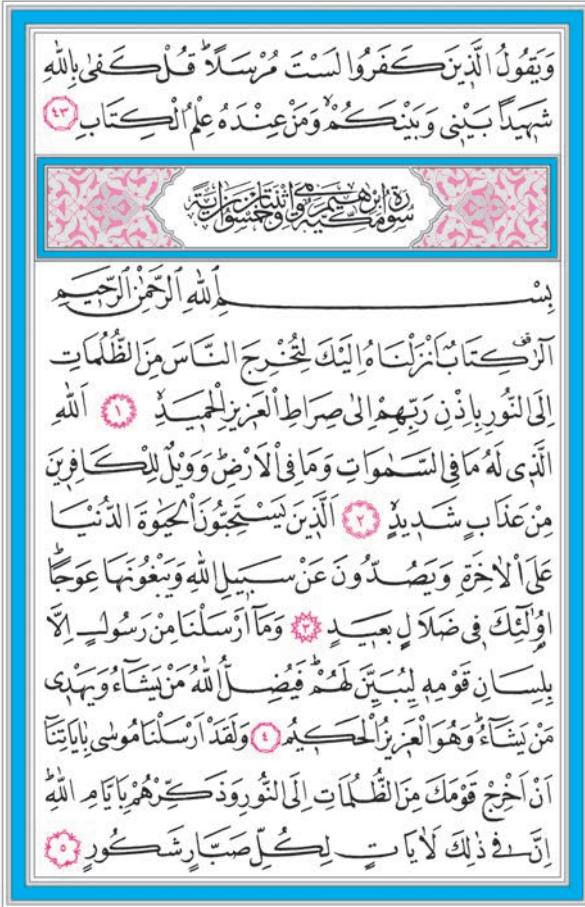 وَيَقُولُ الَّذ۪ينَ كَفَرُوا لَسْتَ مُرْسَلًاۜ قُلْ كَفٰى بِاللّٰهِ
شَه۪يداً بَيْن۪ي وَبَيْنَكُمْۙ وَمَنْ عِنْدَهُ عِلْمُ الْكِتَابِ ﴿٤٣﴾
سُورَةُ اِبْرٰه۪يمَ مَكِّيَّةٌ وَهِيَ اثْنَتَانِ وَخَمْسُونَ اٰيَةً
بِسْمِ اللّٰهِ الرَّحْمٰنِ الرَّح۪يمِ
الٓرٰ۠ كِتَابٌ اَنْزَلْنَاهُ اِلَيْكَ لِتُخْرِجَ النَّاسَ مِنَ الظُّلُمَاتِ
اِلَى النُّورِ بِاِذْنِ رَبِّهِمْ اِلٰى صِرَاطِ الْعَز۪يزِ الْحَم۪يدِۙ ﴿١﴾ اَللّٰهِ
الَّذ۪ي لَهُ مَا فِي السَّمٰوَاتِ وَمَا فِي الْاَرْضِۜ وَوَيْلٌ لِلْكَافِر۪ينَ
مِنْ عَذَابٍ شَد۪يدٍۙ ﴿٢﴾ اَلَّذ۪ينَ يَسْتَحِبُّونَ الْحَيٰوةَ الدُّنْيَا
عَلَى الْاٰخِرَةِ وَيَصُدُّونَ عَنْ سَب۪يلِ اللّٰهِ وَيَبْغُونَهَا عِوَجاًۜ
اُو۬لٰٓئِكَ ف۪ي ضَلَالٍ بَع۪يدٍ ﴿٣﴾ وَمَٓا اَرْسَلْنَا مِنْ رَسُولٍ اِلَّا
بِلِسَانِ قَوْمِه۪ لِيُبَيِّنَ لَهُمْۜ فَيُضِلُّ اللّٰهُ مَنْ يَشَٓاءُ وَيَهْد۪ي
مَنْ يَشَٓاءُۜ وَهُوَ الْعَز۪يزُ الْحَك۪يمُ ﴿٤﴾ وَلَقَدْ اَرْسَلْنَا مُوسٰى بِاٰيَاتِنَٓا
اَنْ اَخْرِجْ قَوْمَكَ مِنَ الظُّلُمَاتِ اِلَى النُّورِ وَذَكِّرْهُمْ بِاَيَّامِ اللّٰهِۜ
اِنَّ ف۪ي ذٰلِكَ لَاٰيَاتٍ لِكُلِّ صَبَّارٍ شَكُورٍ ﴿٥﴾